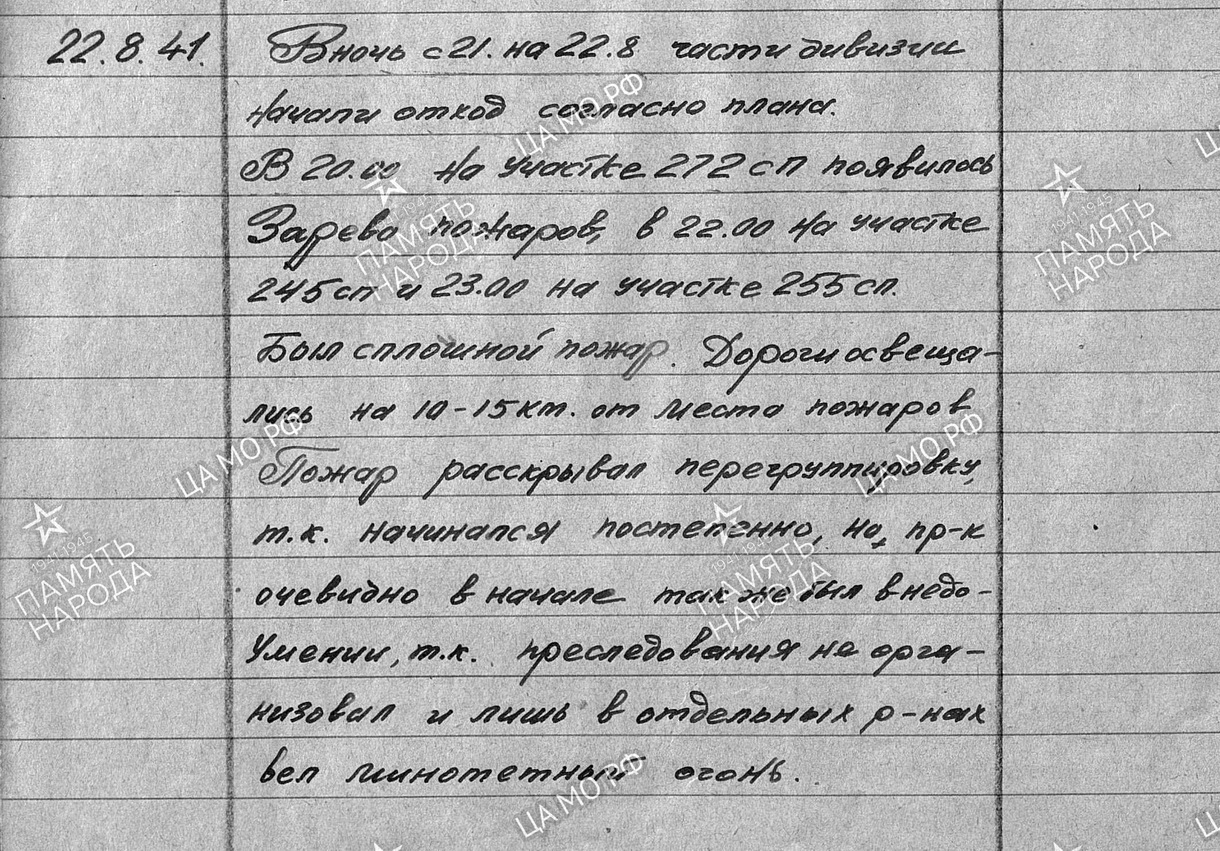 22.8.41. В ночь с 21. на 22.8 части дивизии
начали отход согласно плана.
В 20.00 на участке 272 сп появилось
Зарево пожаров, в 22.00 на участке
245 сп и 23.00 на участке 255 сп.
Был сплошной пожар. Дороги освеща-
лись на 10-15 км. от места пожаров
Пожар расскрывал перегруппировку,
т.к. начинался постепенно, но, пр-к
очевидно в начале так же был в недо-
умении, т.к. преследования не орга-
низовал и лишь в отдельных р-нах
вел минометный огонь.
ЦА МО РФ
1941-1945
ПАМЯТЬ
НАРОДА